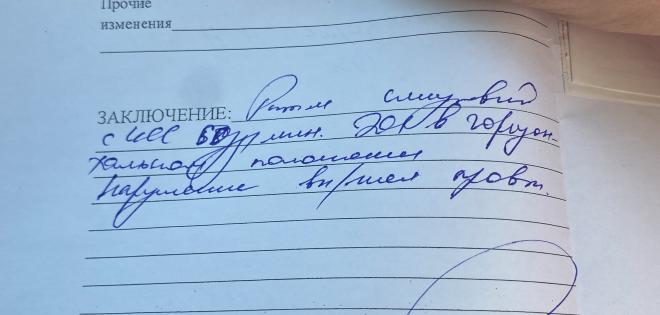 Прочие
изменения
ЗАКЛЮЧЕНИЕ: Ритм синусовый
с ЧСС 60 уд/мин. ЭОС в горизон-
тальном положении
Нарушение вн/жел пров.